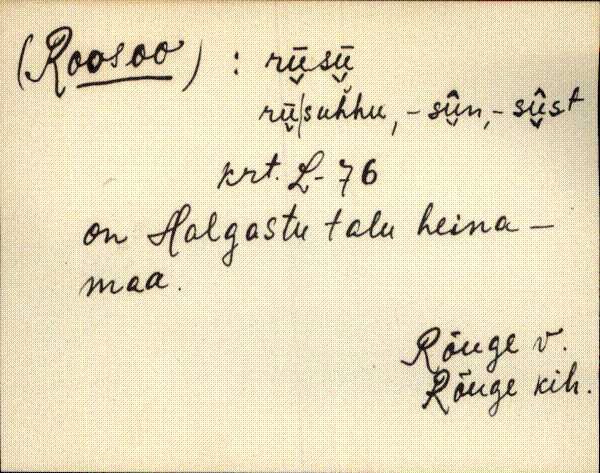 (Roosoo) : rṷ̄sṷ̄
rṷ̄|suh̆hu, -sṷ̂n, -sṷ̂st
krt. L-76
on Halgastu talu heina-
maa.
Rõuge v.
Rõuge kih.